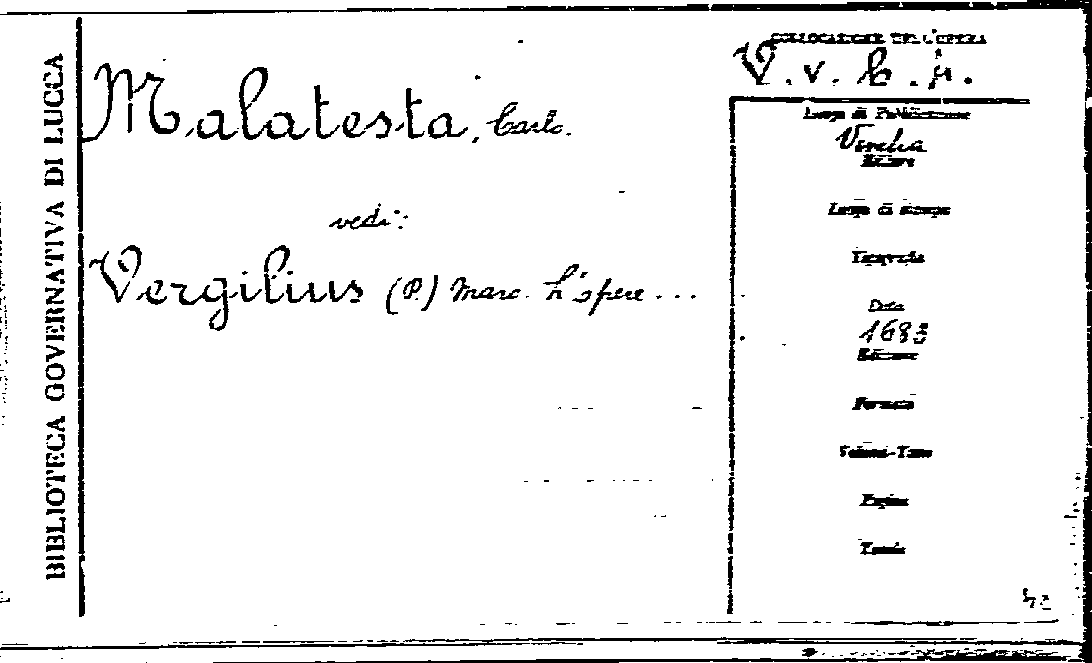 BIBLIOTECA GOVERNATIVA DI LUCCA
Malatesta, Carlo.
vedi:
Vergilius (P.) Maro. L'opere ...
COLLOCAZIONE DELL'OPERA
V. v. b.
Luogo di Pubblicazione
Venetia
Editore
Luogo di stampa
Tipografia
Data
1683
Edizione
Formato
Volumi-Tomo
Pagine
Tavole